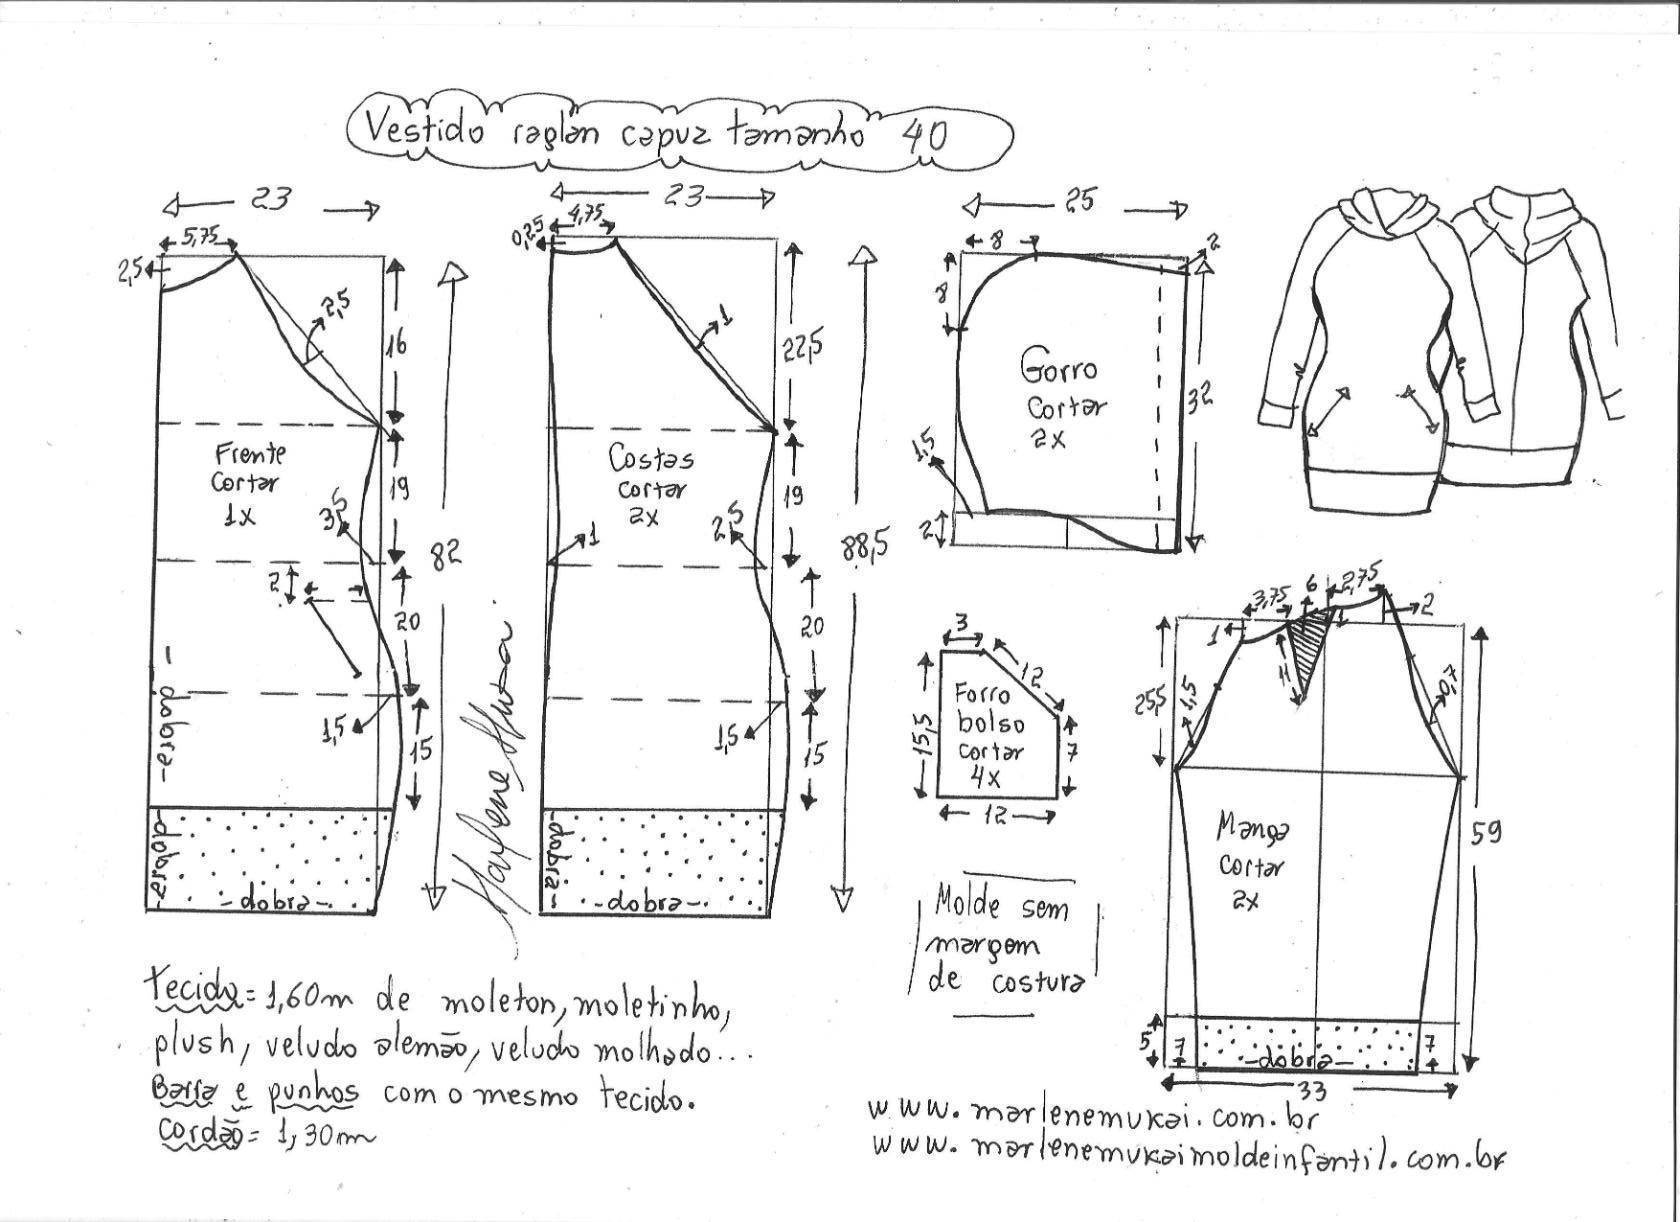 Vestido raglan capuz tamanho 40
23
5,75
2,5
2,5
16
Frente
cortar
1x
3,5
19
82
2
20
1,5
15
-dobra-
-dobra-
-dobra-
23
4,75
0,25
1
22,5
Costas
cortar
2x
1
2,5
19
88,5
20
1,5
15
-dobra-
-dobra-
25
8
2
8
Gorro
cortar
2x
32
1,5
2
3
12
15,5
Forro
bolso
cortar
4x
7
12
Molde sem
margem
de costura
3,75
6
2,75
1
1
2
11
25,5
1,5
0,7
Manga
cortar
2x
59
5
7
-dobra-
7
33
tecido=1,60m de moleton, moletinho,
plush, veludo alemão, veludo molhado...
Barra e punhos com o mesmo tecido.
cordão=1,30m
www.marlenemukai.com.br
www.marlenemukaimoldeinfantil.com.br